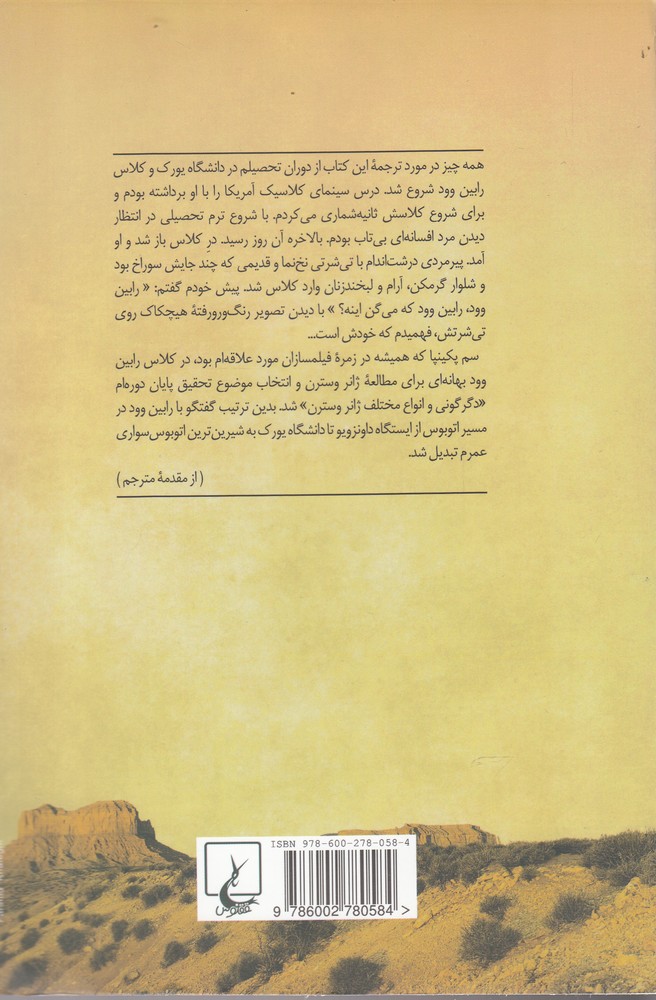 همه چیز در مورد ترجمهٔ این کتاب از دوران تحصیلم در دانشگاه یورک و کلاس
رابین وود شروع شد. درس سینمای کلاسیک آمریکا را با او برداشته بودم و
برای شروع کلاسش ثانیه‌شماری می‌کردم. با شروع ترم تحصیلی در انتظار
دیدن مرد افسانه‌ای بی‌تاب بودم. بالاخره آن روز رسید. درِ کلاس باز شد و او
آمد. پیرمردی درشت‌اندام با تی‌شرتی نخ‌نما و قدیمی که چند جایش سوراخ بود
و شلوار گرمکن، آرام و لبخندزنان وارد کلاس شد. پیش خودم گفتم: « رابین
وود، رابین وود که می‌گن اینه؟ » با دیدن تصویر رنگ‌ورورفتهٔ هیچکاک روی
تی‌شرتش، فهمیدم که خودش است...
سم پکینپا که همیشه در زمرهٔ فیلمسازان مورد علاقه‌ام بود، در کلاس رابین
وود بهانه‌ای برای مطالعهٔ ژانر وسترن و انتخاب موضوع تحقیق پایان دوره‌ام
«دگرگونی و انواع مختلف ژانر وسترن» شد. بدین ترتیب گفتگو با رابین وود در
مسیر اتوبوس از ایستگاه داونزویو تا دانشگاه یورک به شیرین‌ترین اتوبوس‌سواری
عمرم تبدیل شد.
( از مقدمهٔ مترجم )
ISBN 978-600-278-058-4
9 786002 780584 >
ققنوس